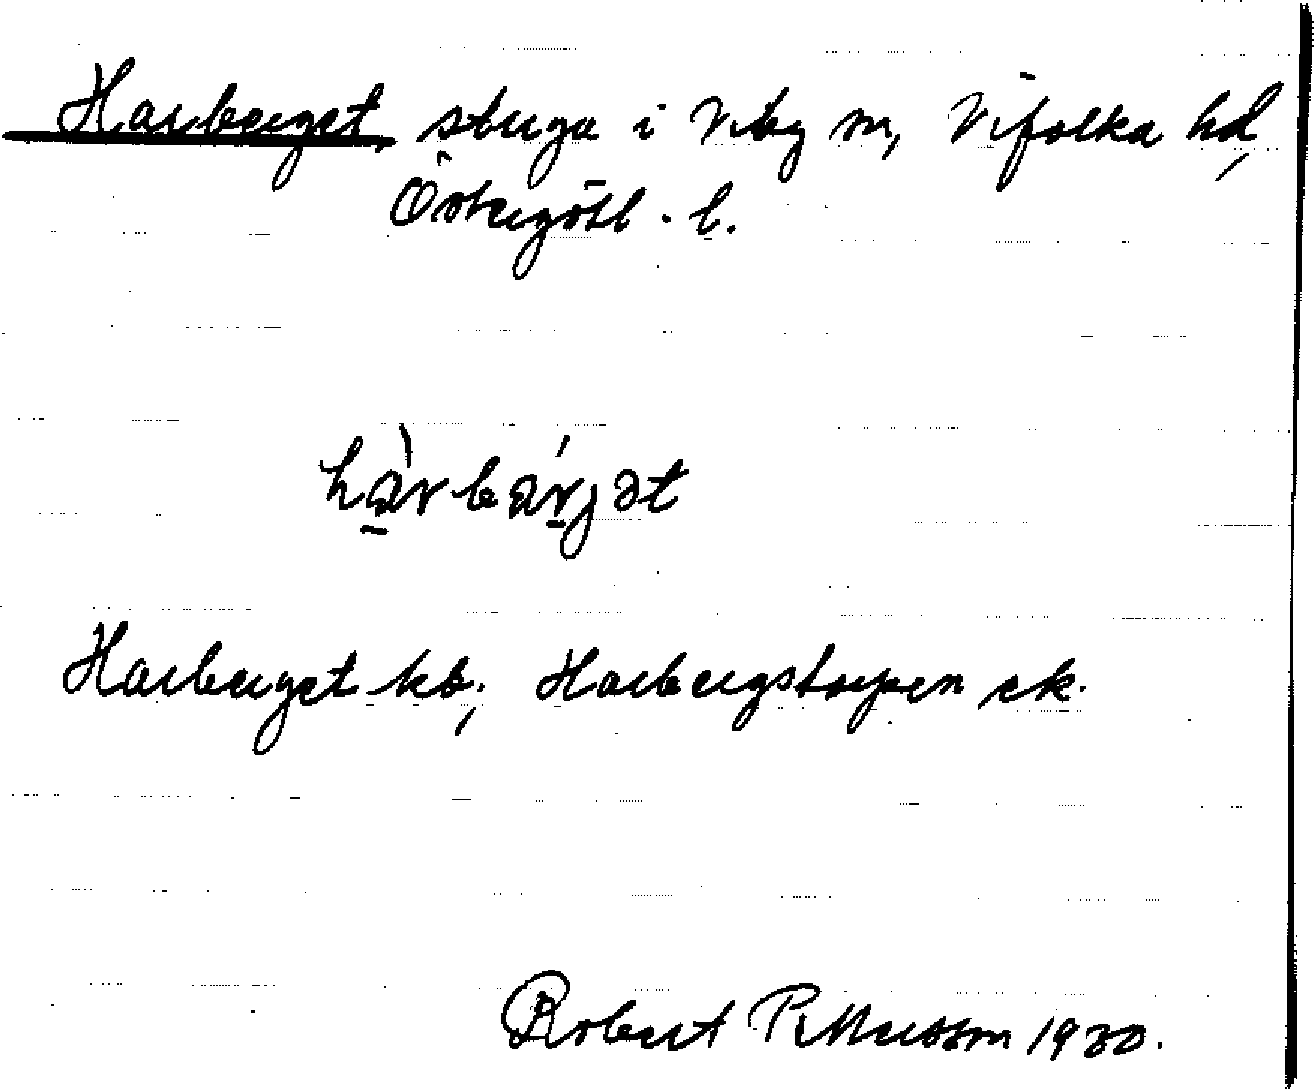 Harberget, stuga i Viby sn, Vifolka hd,
Östergötl. l.
hàrbárjət
Harberget kb; Harbergstorpen ek.
Robert Pettersson 1930.